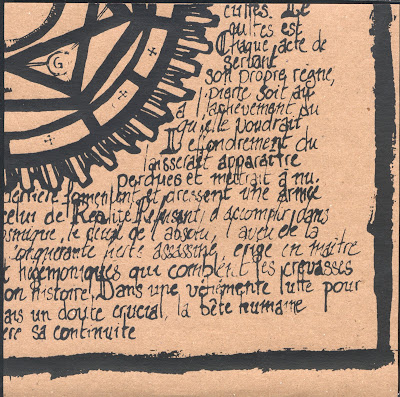 cultes. Le
qu'ltes est
Chaque acte de
Servant
son propre règne,
pierre soit au
à l'achèvement du
qu'elle voudrait
L'effondrement du
laisserait apparaître
perdues et mettrait à nu.
derrière fomentent et dressent une armée
celui de Réalité. Refusant d'accomplir dans
osmique, le deuil de l'absolu, l'aveu de la
Conquérante fierté assassine, érige en maître
s hégémoniques qui comblent les crevasses
on histoire. Dans une véhémente lutte pour
ans un doute crucial, la bête humaine
ère sa continuité
G